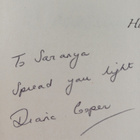 To Saranya
Spread you light
Diane Cooper